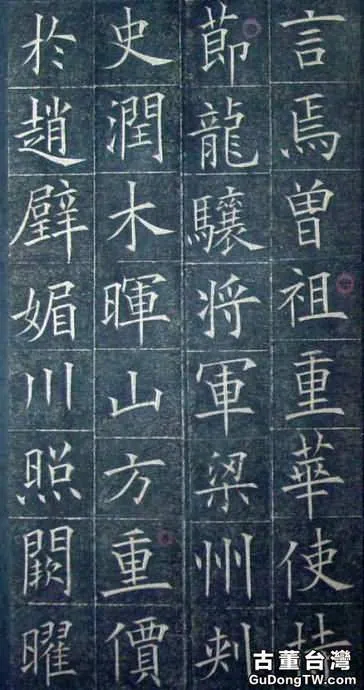 言焉曾祖重華使持
莭龍驤将軍梁州刺
史潤木暉山方重價
於趙璧媚川照闕曜
古董台灣
GuDongTW.com